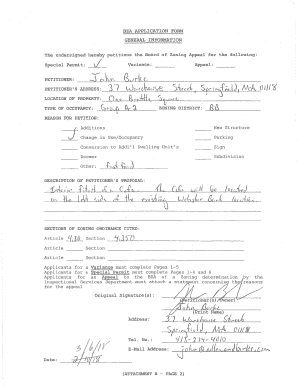 BZA APPLICATION FORM
GENERAL INFORMATION
The undersigned hereby petitions the Board of Zoning Appeal for the following:
Special Permit: ✓ Variance: Appeal:
PETITIONER: John Burke
PETITIONER'S ADDRESS: 37 Warehouse Street, Springfield, MA 01118
LOCATION OF PROPERTY: One Brattle Square
TYPE OF OCCUPANCY: Group A-2 ZONING DISTRICT: BB
REASON FOR PETITION:
Additions New Structure
✓ Change in Use/Occupancy Parking
Conversion to Addi'l Dwelling Unit's Sign
Dormer Subdivision
Other: Fast food
DESCRIPTION OF PETITIONER'S PROPOSAL:
Interior fitout of a Cafe. The Cafe will be located
on the left side of the existing Webster Bank location
SECTIONS OF ZONING ORDINANCE CITED:
Article 4.30 Section 4.35
Article Section
Article Section
Applicants for a Variance must complete Pages 1-5
Applicants for a Special Permit must complete Pages 1-4 and 6
Applicants for an Appeal to the BZA of a Zoning determination by the
Inspectional Services Department must attach a statement concerning the reasons
for the appeal
Original Signature(s):
(Petitioner(s)/Owner)
John Burke
(Print Name)
Address: 37 Warehouse Street
Springfield, MA 01118
Tel. No.: 413-214-4010
E-Mail Address:
3/6/18
Date:
(ATTACHMENT B - PAGE 2)